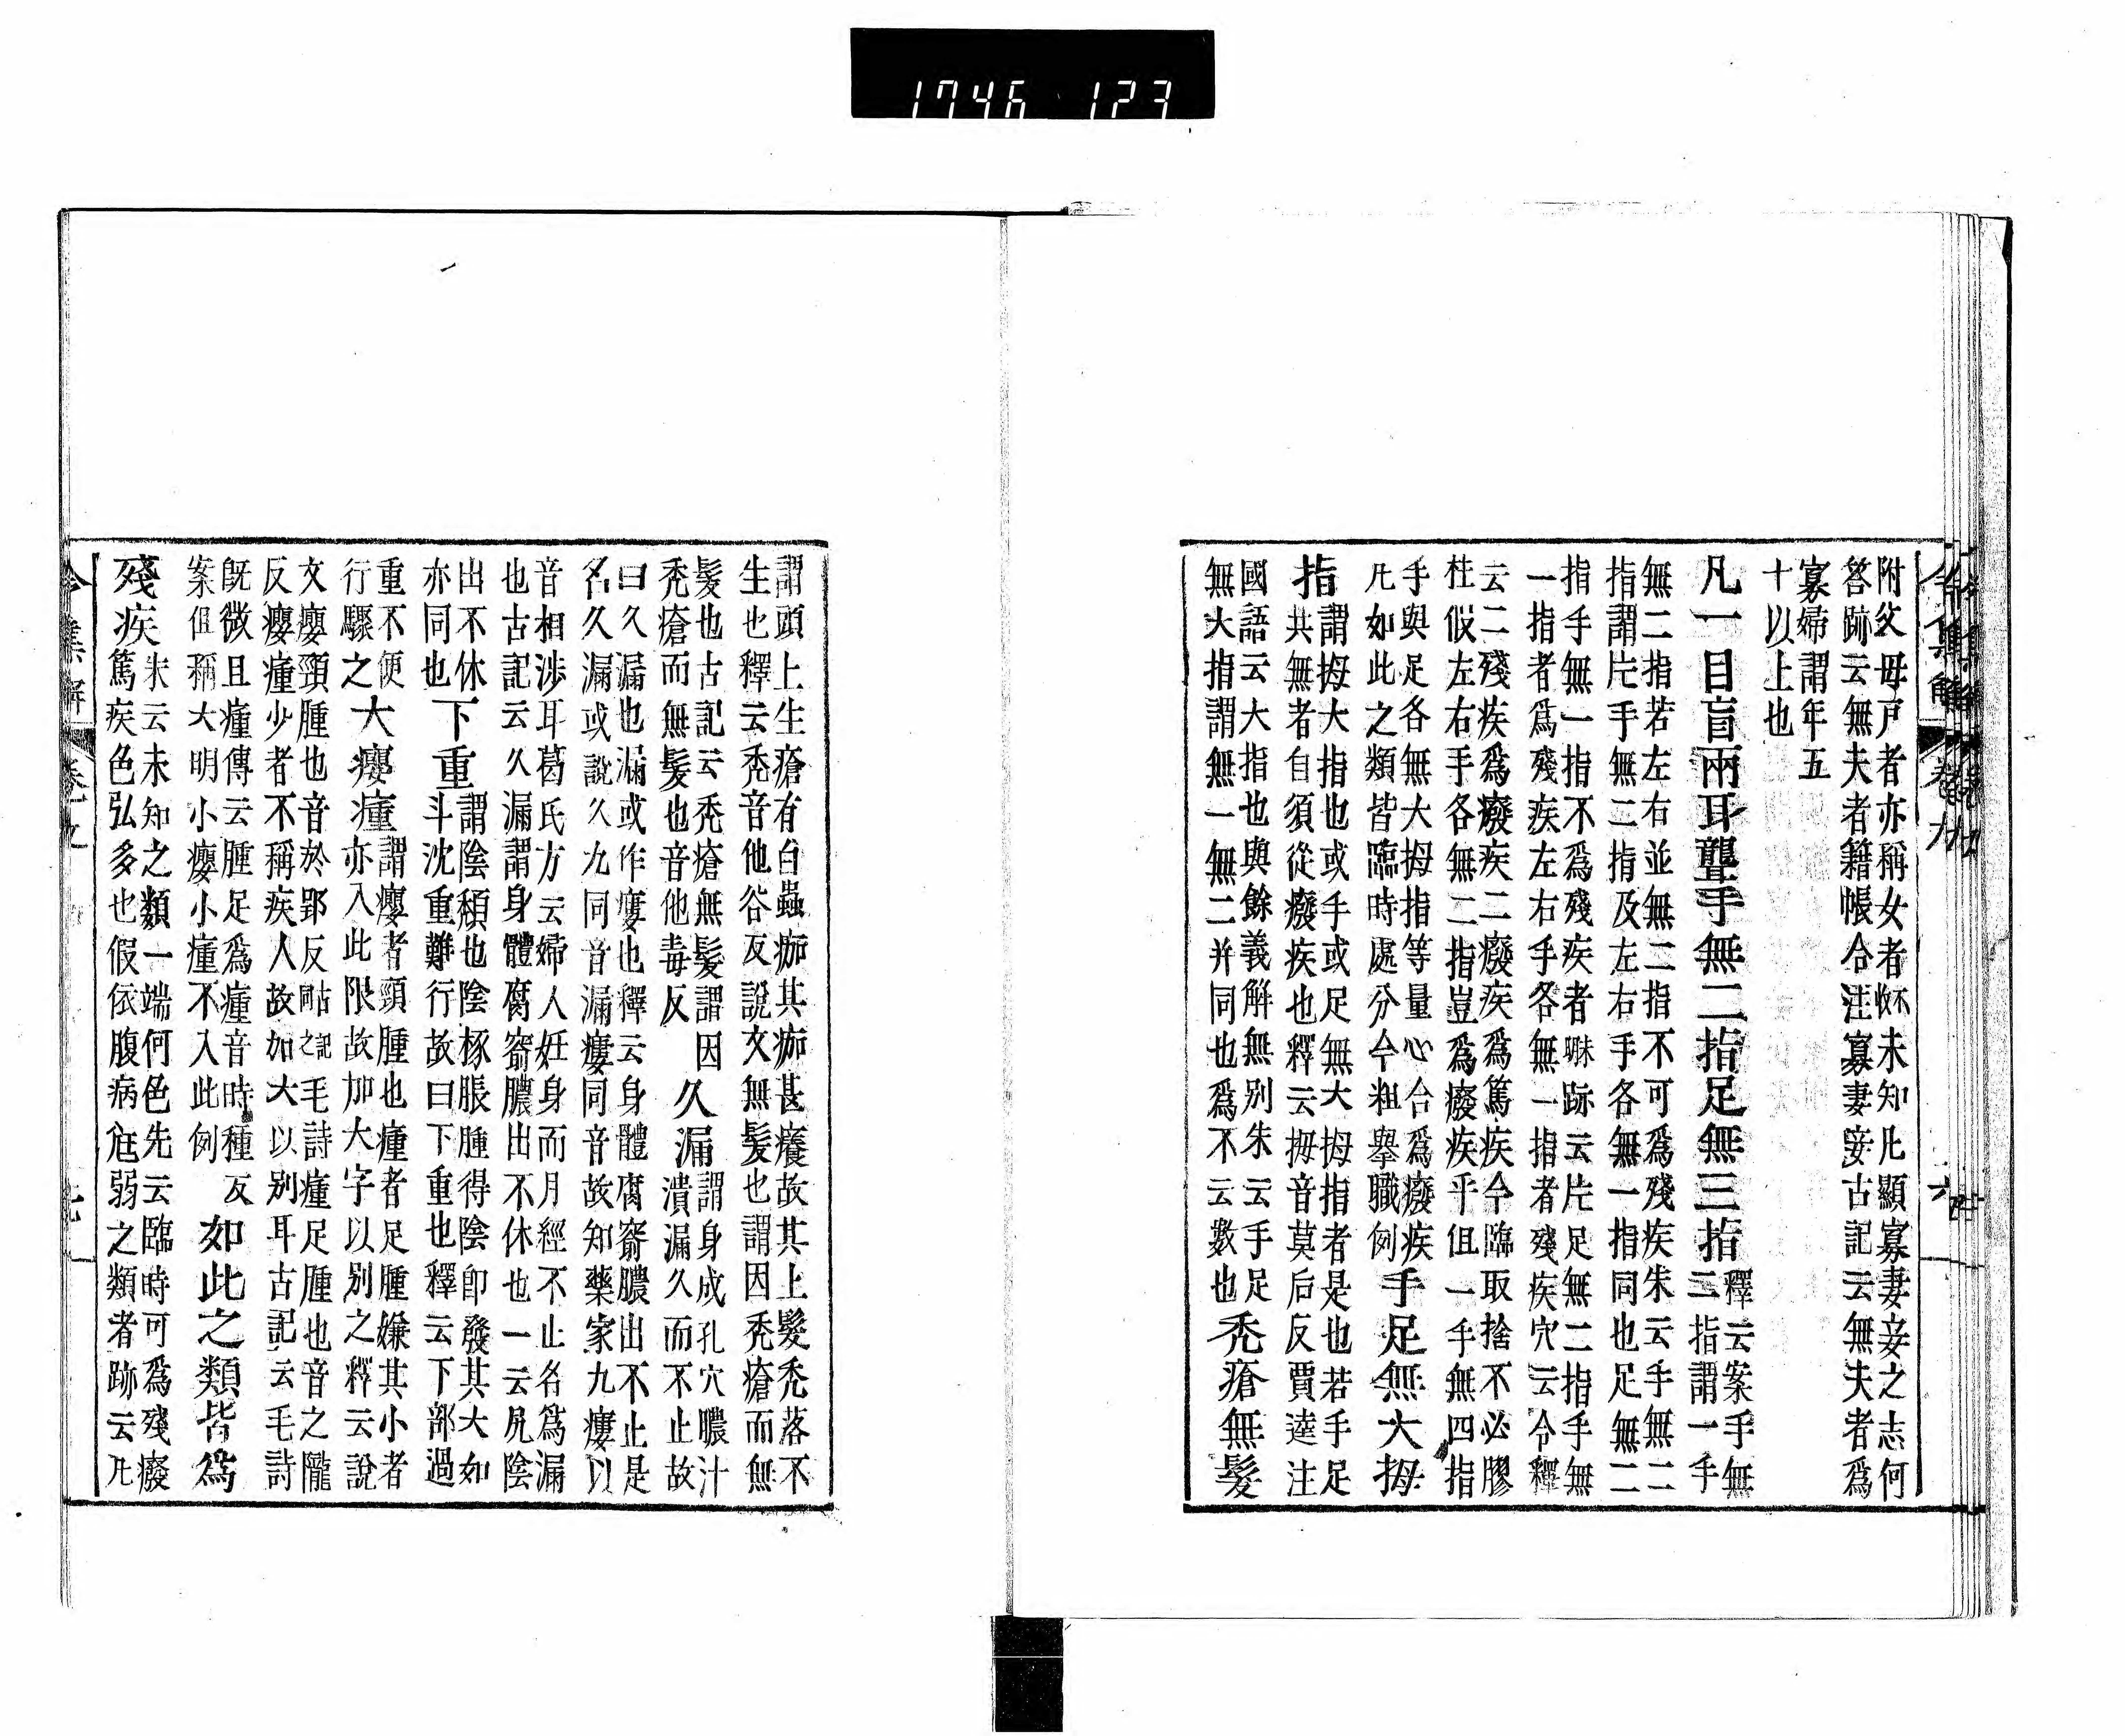 1746 123
附父母戸者亦稱女者未知凡顯寡妻妾之志何
答跡云無夫者籍帳合注寡妻妾古記云無夫者爲
寡婦謂年五
十以上也
凡一目盲兩耳聾手無二指足無三指
釋云案手無
二指謂一手
無二指若左右並無二指不可爲殘疾朱云手無二
指謂片手無二指及左右手各無一指同也足無二
指手無一指不爲殘疾者跡云片足無二指手無
一指者爲殘疾左右手各無一指者殘疾穴云令釋
云二殘疾爲癈疾二癈疾爲篤疾今臨取捨不必膠
柱假左右手各無二指豈爲癈疾乎但一手無四指
手與足各無大拇指等量心合爲癈疾
凡如此之類皆臨時處分令粗擧職例
手足無大拇
指
謂拇大指也或手或足無大拇指者是也若手足
共無者自須從癈疾也釋云拇音莫后反賈逵注
國語云大指也與餘義解無別朱云手足
無大指謂無一無二并同也爲不云數也
禿瘡無髮
謂頭上生瘡有白蟲痂其痂甚癢故其上髮禿落不
生也釋云禿音他谷反說文無髮也謂因禿瘡而無
髮也古記云禿瘡無髮謂因
禿瘡而無髮也音他毒反
久漏
謂身成孔穴膿汁
潰漏久而不止故
曰久漏也漏或作瘻也釋云身體腐竅膿出不止是
名久漏或說久九同音漏瘻同音故知藥家九瘻以
音相渉耳葛氏方云婦人妊身而月經不止名爲漏
也古記云久漏謂身體腐竅膿出不休也一云尻陰
出不休
亦同也
下重
謂陰㿗也陰核脹腫得陰即發其大如
斗沈重難行故曰下重也釋云下部過
重不便
行驟之
大癭瘇
謂癭者頸腫也瘇者足腫嫌其小者
亦入此限故加大字以別之釋云說
文癭頸腫也音於郢反古記之毛詩瘇足腫也音之隴
反癭瘇少者不稱疾人故如大以別耳古記云毛詩
既微且瘇傳云腫足爲瘇音時種反
案但稱大明小癭小瘇不入此例
如此之類皆爲
殘疾
朱云未知之類一端何色先云臨時可爲殘癈
篤疾色弘多也假依腹病尫弱之類者跡云凡